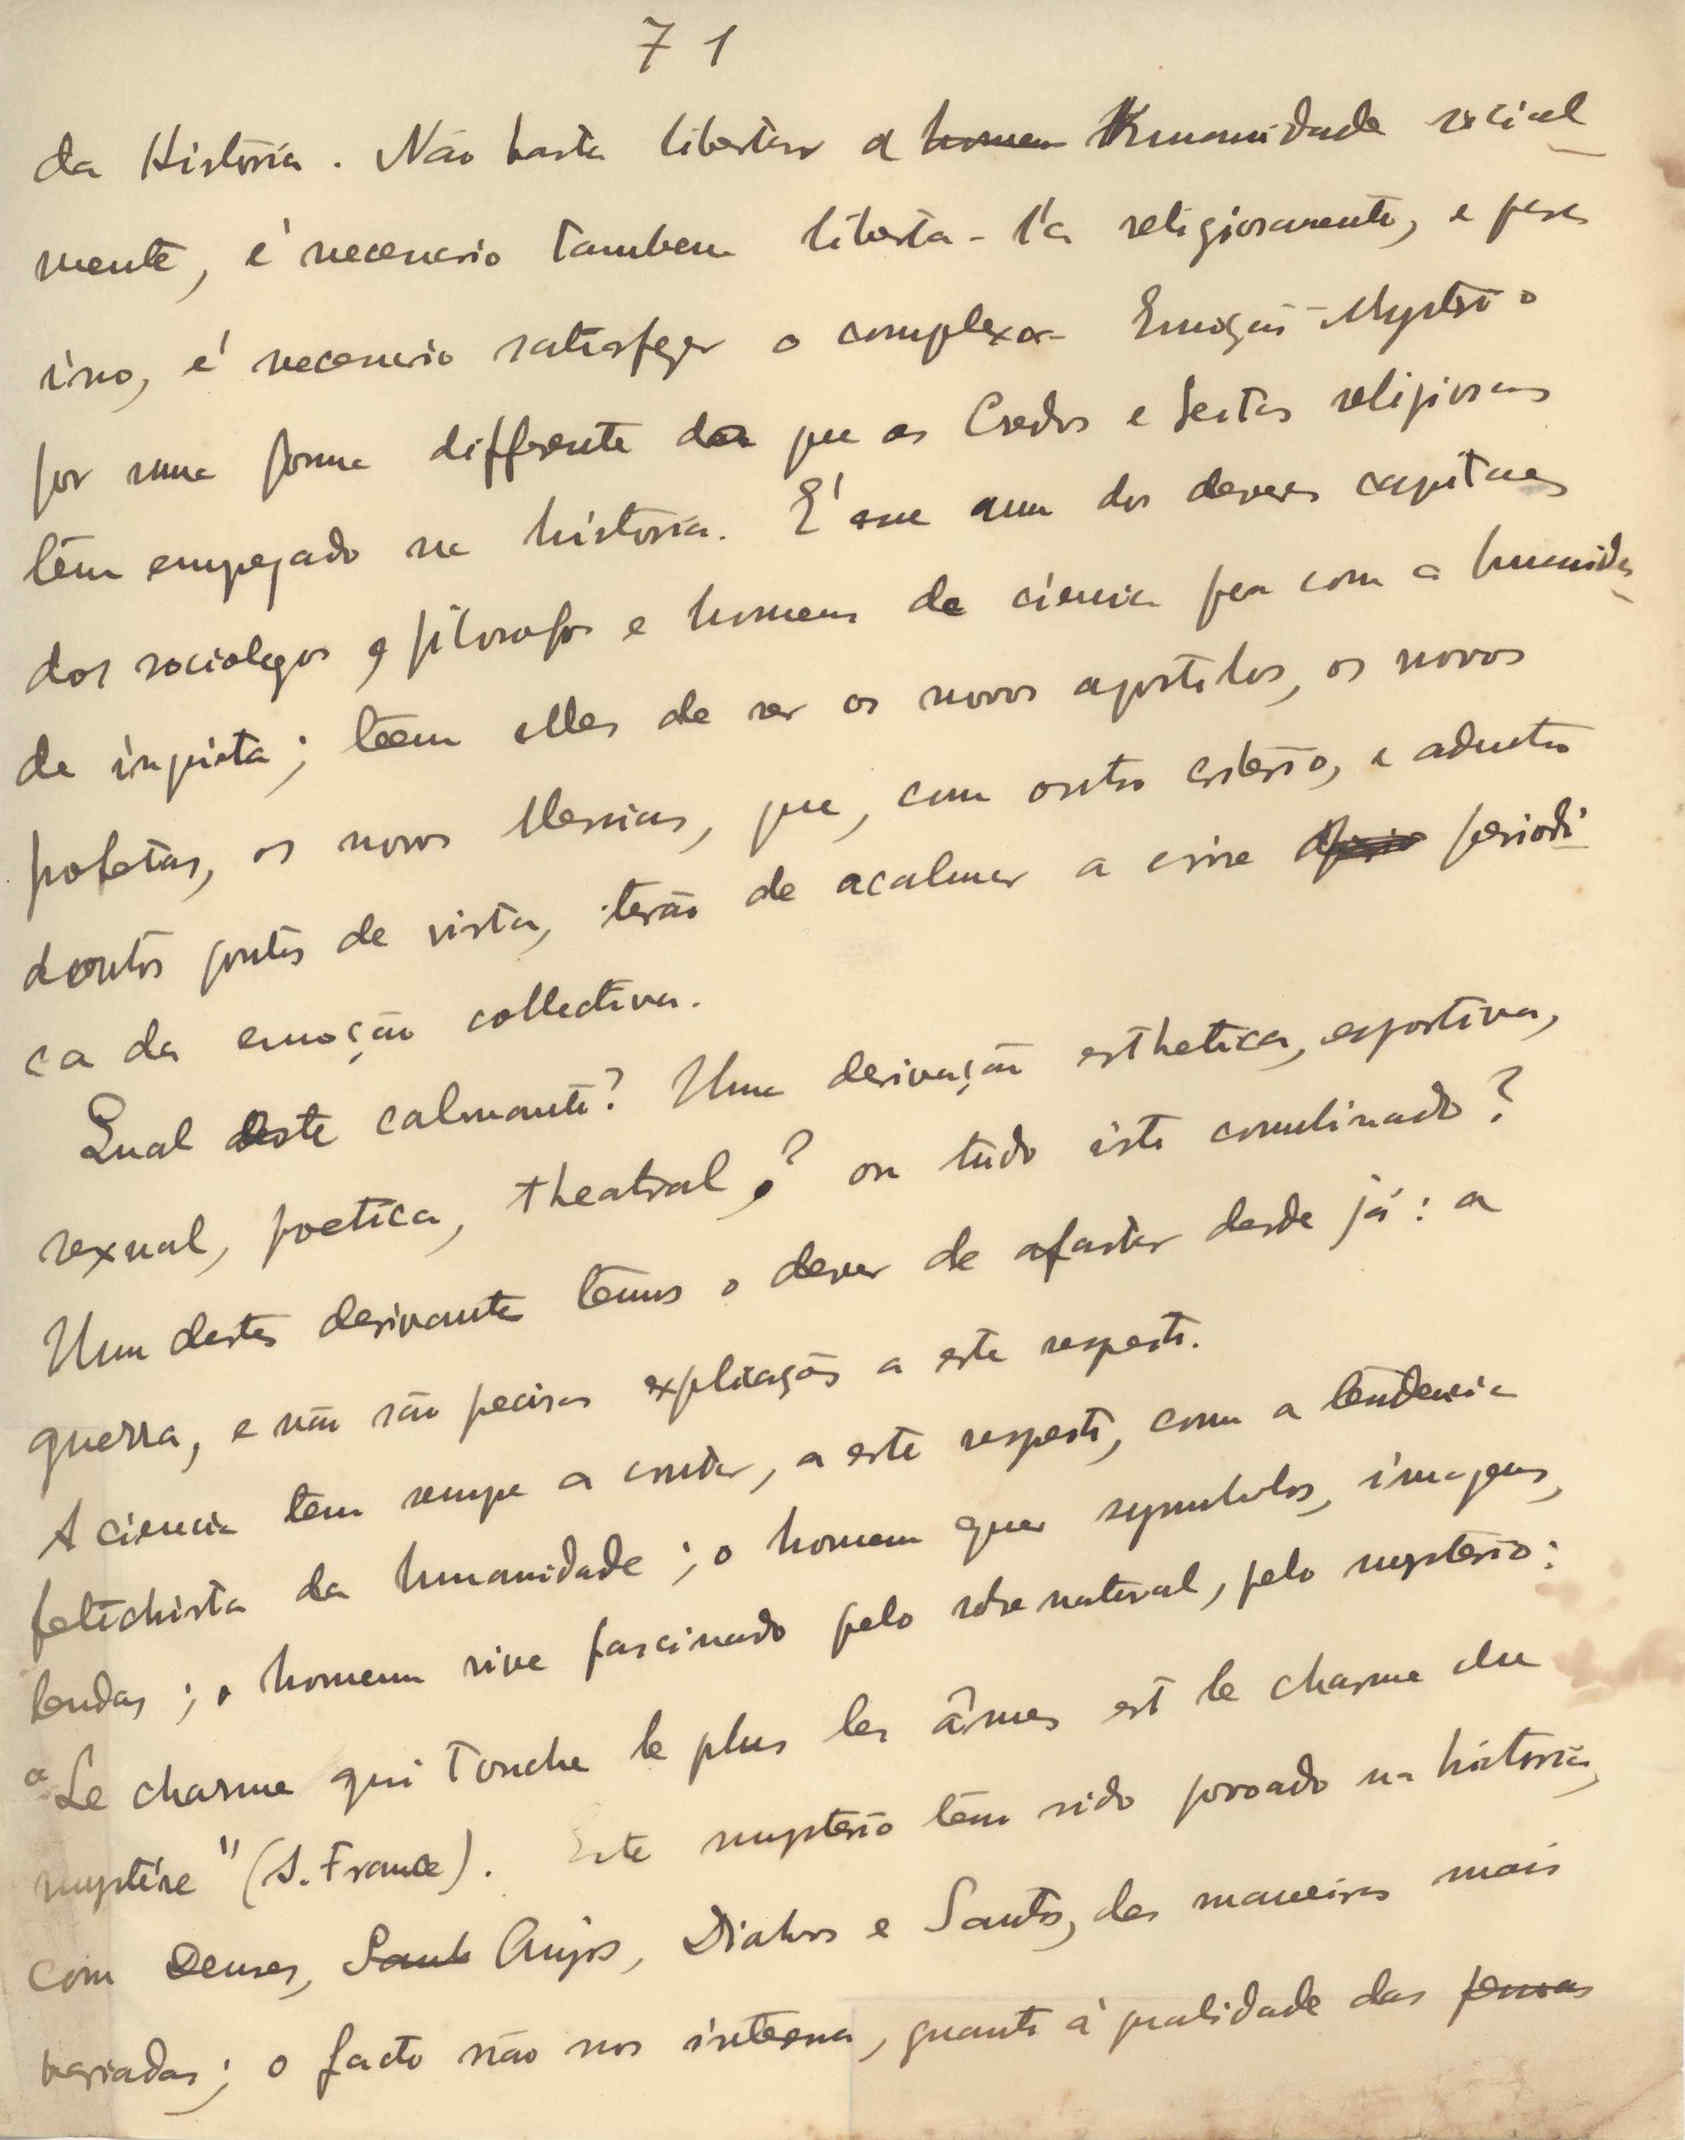 71
da Historia. Não basta libertar a homem Humanidade social
mente, é necessario tambem liberta-l'a religiosamente, e para
isso, é necessario satisfazer o complexo - Emoção - Mysterio
por uma forma differente da que os Credos e Seitas religiosas
têm empregado na historia. É esse um dos deveres capitaes
dos sociologos, filosofos e homens de ciencia para com a humanida
de inquieta; teem elles de ser os novos apostolos, os novos
profetas, os novos Messias, que, com outro criterio, e adentro
doutros pontos de vista, terão de acalmar a crise periodi
ca da emoção collectiva.
Qual este calmante? Uma derivação esthetica, esportiva,
sexual, poetica, theatral,? ou tudo isto combinado?
Um destes derivantes temos o dever de afastar desde já: a
guerra, e não são precisas explicações a este respeito.
A ciencia tem sempre a contar, a este respeito, com a tendencia
fetichista da humanidade; o homem quer symbolos, imagens,
lendas; o homem vive fascinado pelo sobrenatural, pelo mysterio:
"Le charme qui touche le plus les âmes est le charme du
mystère" (A. France). Este mysterio têm sido povoado na historia,
com Deuses, Sant Anjos, Diabos e Santos, das maneiras mais
variadas; o facto não nos interessa, quanto à qualidade das pessoas